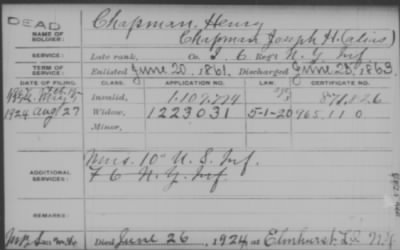 DEAD
NAME OF SOLDIER:
Chapman, Henry
Chapman, Joseph H. (alias)
SERVICE:
Late rank, Co. I, 6 Reg't N.Y. Inf
TERM OF SERVICE:
Enlisted June 20, 1861, Discharged June 25, 1863
DATE OF FILING. CLASS. APPLICATION NO. LAW. CERTIFICATE NO.
Invalid,
1924 Aug 27 Widow, 1223031 5-1-20 965.110
Minor,
ADDITIONAL SERVICES:
U.S. Inf.
N.Y. Inf
REMARKS:
Died June 26, 1924, at Elmhurst L I N.Y.